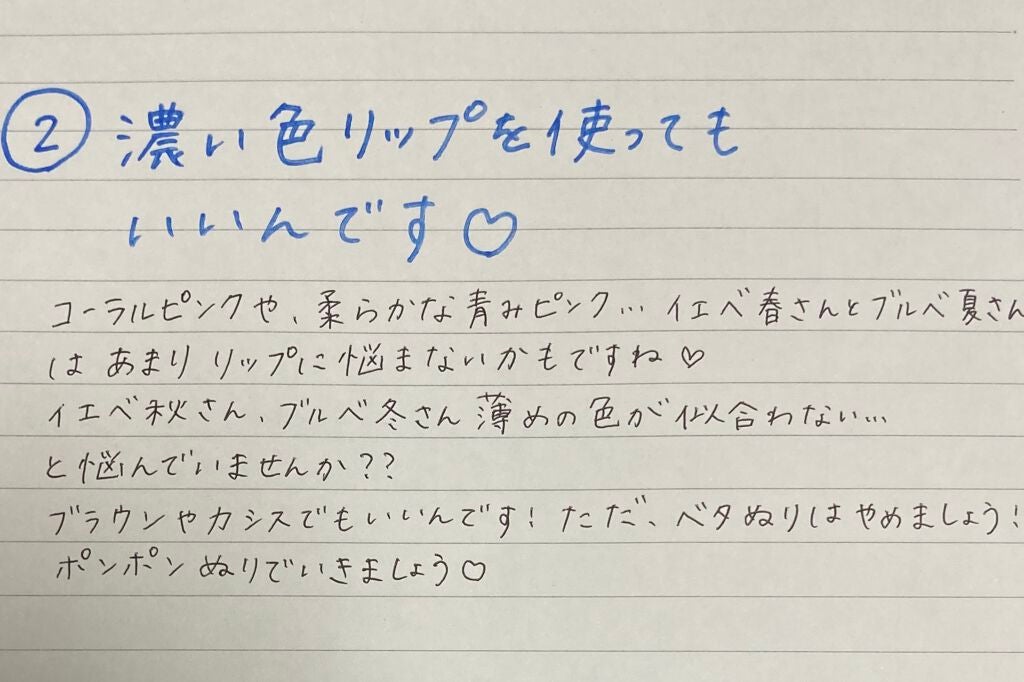 ② 濃い色リップを使っても
いいんです♡
コーラルピンクや、柔らかな青みピンク… イエベ春さんとブルベ夏さん
は あまり リップに悩まないかもですね♡
イエベ秋さん、ブルベ冬さん 薄めの色が似合わない…
と悩んでいませんか??
ブラウンやカシスでもいいんです! ただ、ベタぬりはやめましょう!
ポンポンぬりでいきましょう♡